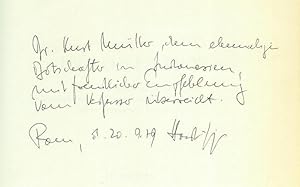 Dr. Kurt Müller, dem ehemaligen
Botschafter in Indonesien,
mit freundlicher Empfehlung
vom Verfasser überreicht.
Rom, 20.9.79